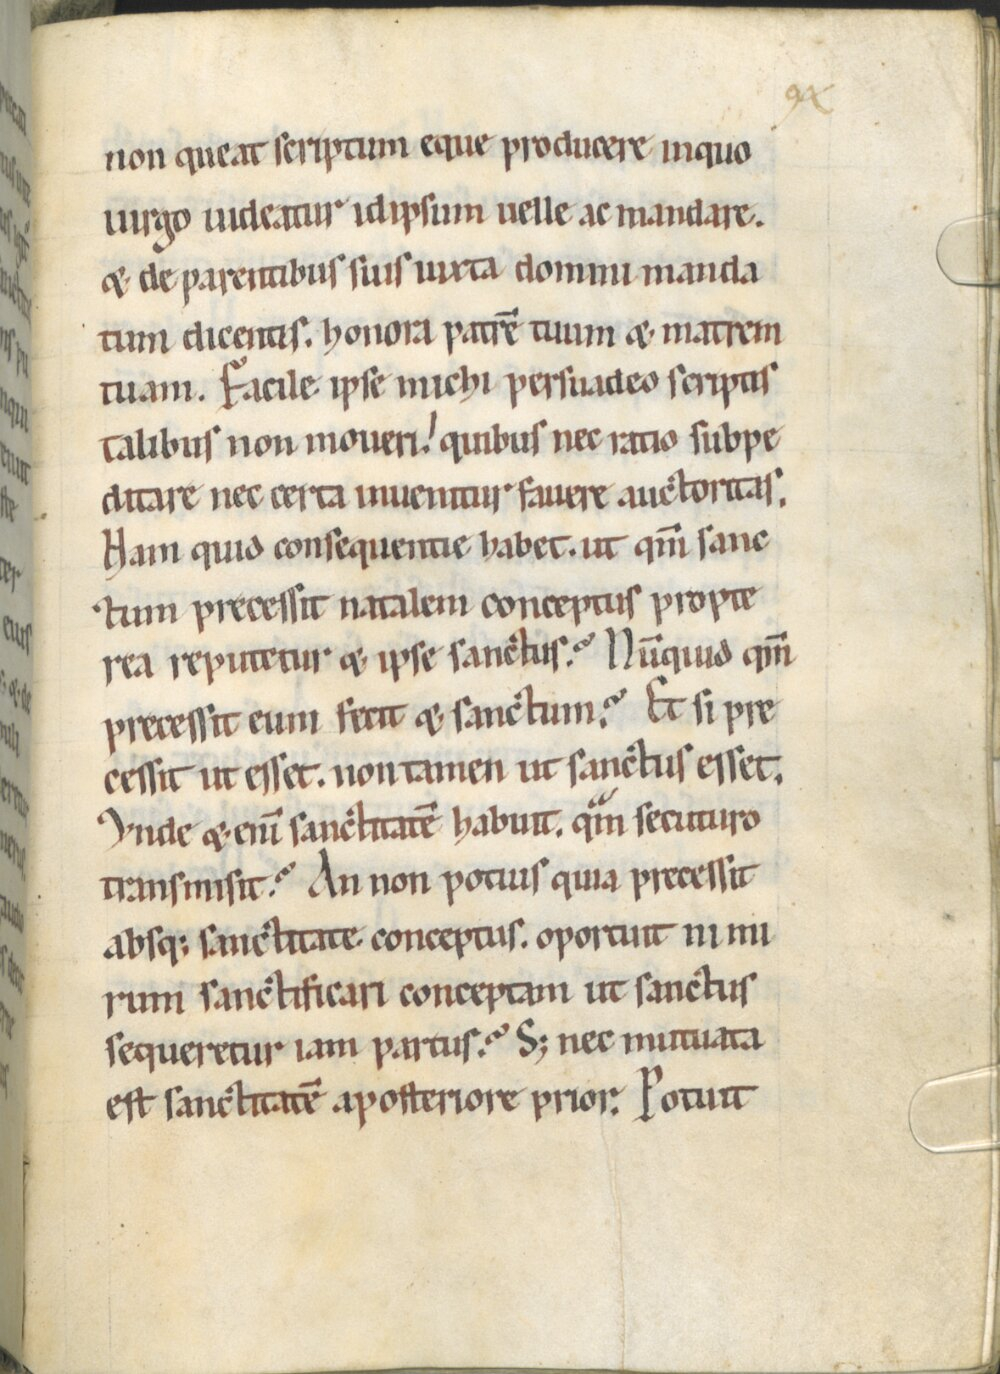 non queat scriptum eque producere inquo
uirgo uideatur idipsum uelle ac mandare.
& de parentibus suis iuxta domini manda
tum dicentis. honora patrē tuum & matrem
tuam. Facile ipse michi persuadeo scriptis
talibus non moueri! quibus nec ratio subpe
ditare nec certa inuenitur fauere auctoritas.
Nam quid consequentie habet. ut qm̄ sanc
tum precessit natalem conceptus propte
rea reputetur & ipse sanctus? Nūquid qm̄
precessit eum fecit & sanctum? Et si pre
cessit ut esset. non tamen ut sanctus esset.
Vnde & eni͞ sanctitatē habuit. qᵃm secuturo
transmisit? An non potius quia precessit
absq; sanctitate conceptus. oportuit ni mi
rum sanctificari conceptam ut sanctus
sequeretur iam partus? S; nec mutuata
est sanctitatē aposteriore prior. Potuit